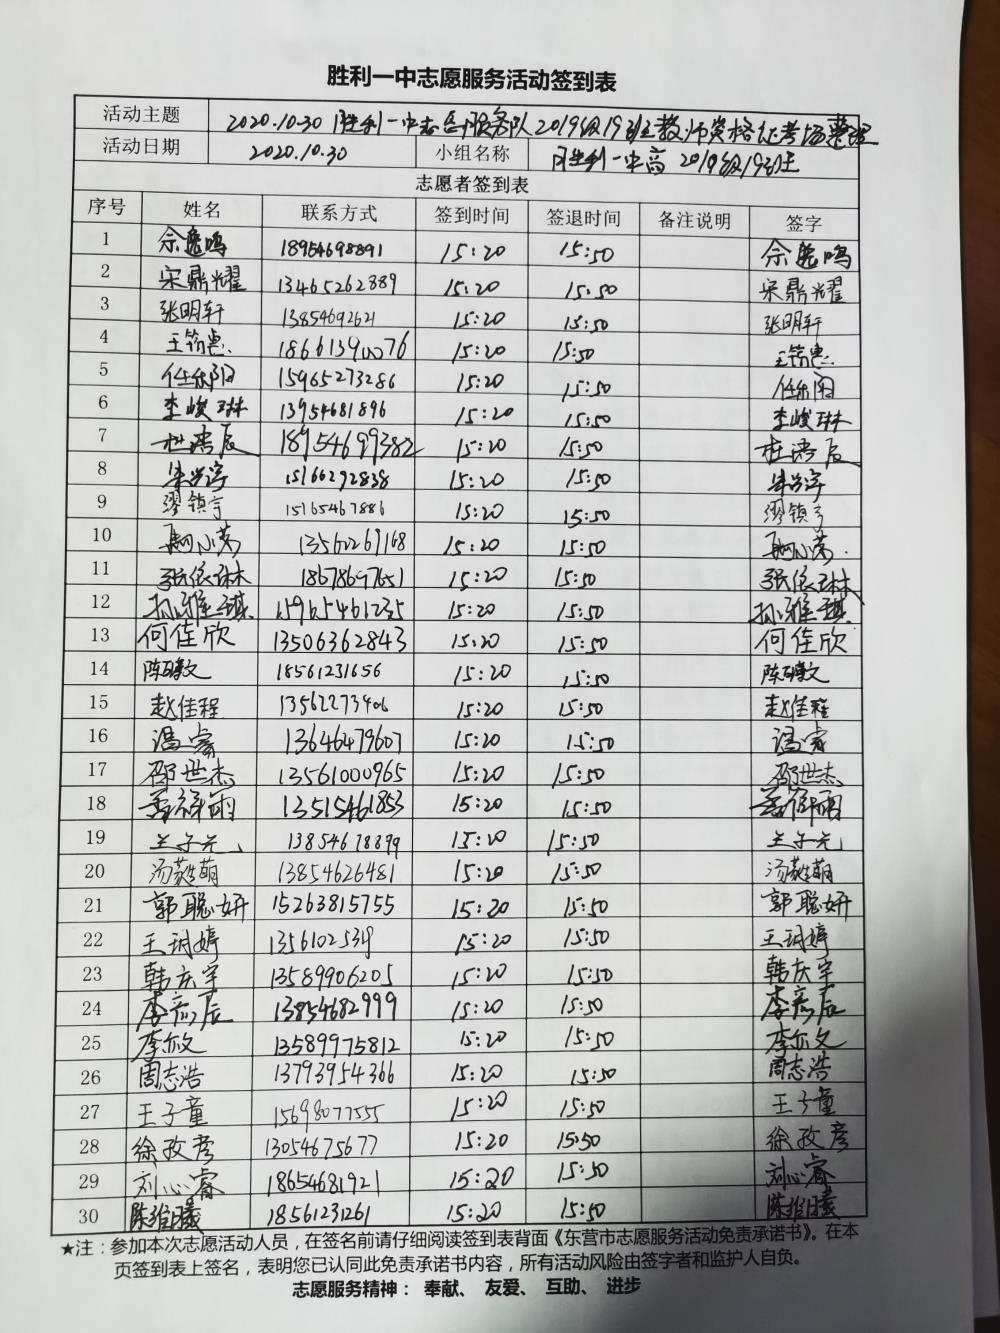 胜利一中志愿服务活动签到表
活动主题 2020.10.30 胜利一中志愿服务队2019级19班教师资格证考场整理
活动日期 2020.10.30 小组名称 胜利一中高2019级19班
志愿者签到表
序号 姓名 联系方式 签到时间 签退时间 备注说明 签字
1 18954698891 15:20 15:50
2 宋鼎耀 13465262889 15:20 15:50 宋鼎耀
3 张明轩 13854692621 15:20 15:50 张明轩
4 15:20 15:50
5 15965273286 15:20 15:50
6 李峻琳 13954681896 15:20 15:50 李峻琳
7 18954699382 15:20 15:50
8 15166292838 15:20 15:50
9 缪镇宇 15165467886 15:20 15:50 缪镇宇
10 13560269168 15:20 15:50
11 张依琳 18678697651 15:20 15:50 张依琳
12 孙雅琪 15965461235 15:20 15:50 孙雅琪
13 何佳欣 13506362843 15:20 15:50 何佳欣
14 18561231656 15:20 15:50
15 赵佳程 13562273406 15:20 15:50 赵佳程
16 温睿 13646479607 15:20 15:50 温睿
17 邵世杰 13561000965 15:20 15:50 邵世杰
18 13515461853 15:20 15:50
19 13854678899 15:20 15:50
20 13854626481 15:20 15:50
21 郭聪妍 15263815755 15:20 15:50 郭聪妍
22 王玥婷 15:20 15:50 王玥婷
23 韩庆宇 13589906205 15:20 15:50 韩庆宇
24 李彦辰 13854682999 15:20 15:50 李彦辰
25 李亦文 13589975812 15:20 15:50 李亦文
26 周志浩 13793954366 15:20 15:50 周志浩
27 王子童 15698077555 15:20 15:50 王子童
28 徐孜彦 13054675677 15:20 15:50 徐孜彦
29 刘心睿 18654681921 15:20 15:50 刘心睿
30 陈维曦 18561231261 15:20 15:50 陈维曦
★注：参加本次志愿活动人员，在签名前请仔细阅读签到表背面《东营市志愿服务活动免责承诺书》。在本
页签到表上签名，表明您已认同此免责承诺书内容，所有活动风险由签字者和监护人自负。
志愿服务精神：奉献、友爱、互助、进步